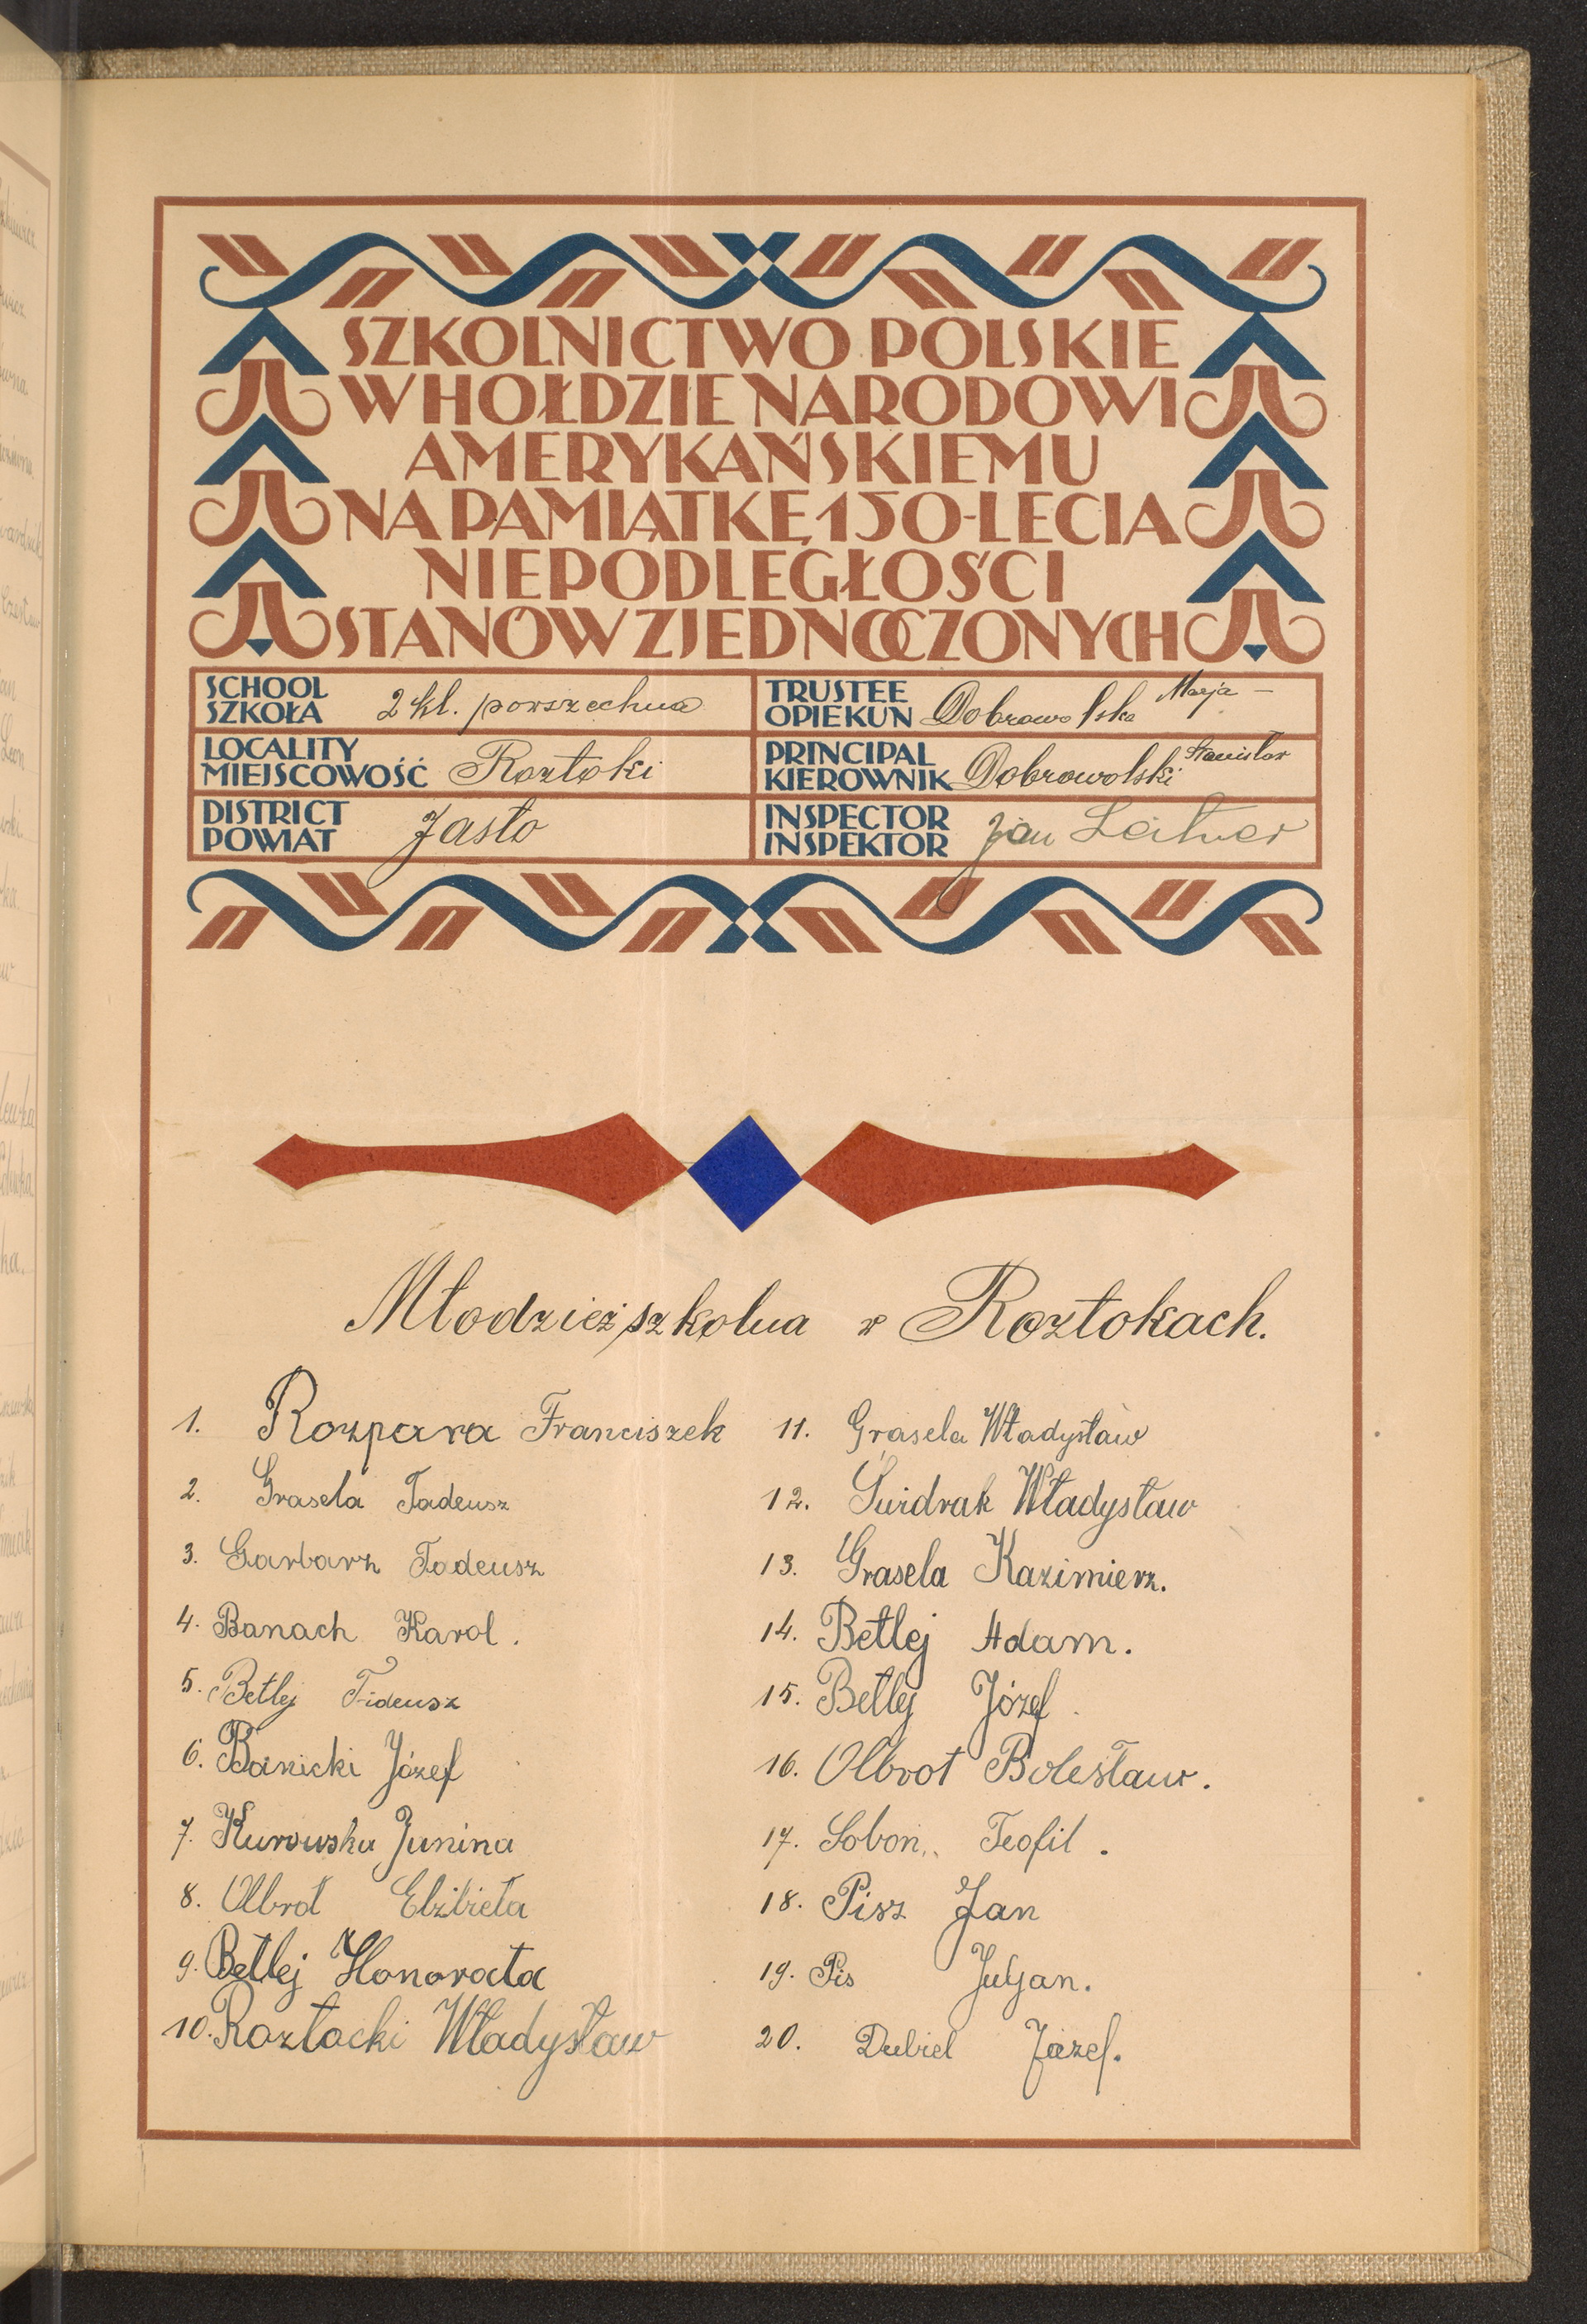 SZKOLNICTWO POLSKIE
W HOŁDZIE NARODOWI
AMERYKAŃSKIEMU
NA PAMIĄTKĘ 150-LECIA
NIEPODLEGŁOŚCI
STANÓW ZJEDNOCZONYCH
SCHOOL
SZKOŁA 2 kl. powszechna
TRUSTEE
OPIEKUN Dobrowolska Marja -
LOCALITY
MIEJSCOWOŚĆ Roztoki
PRINCIPAL
KIEROWNIK Dobrowolski Stanisław
DISTRICT
POWIAT Jasło
INSPECTOR
INSPEKTOR Jan Leitner
Młodzież szkolna w Roztokach.
1. Rozpara Franciszek
2. Grasela Tadeusz
3. Garbarz Tadeusz
4. Banach Karol.
5. Betlej Tadeusz
6. Banicki Józef
7. Kurowska Janina
8. Olbrot Elżbieta
9. Betlej Honorata
10. Roztocki Władysław
11. Grasela Władysław
12. Świdrak Władysław
13. Grasela Kazimierz.
14. Betlej Adam.
15. Betlej Józef.
16. Olbrot Bolesław.
17. Soboń Teofil.
18. Pisz Jan
19. Pis Juljan.
20. Dubiel Józef.